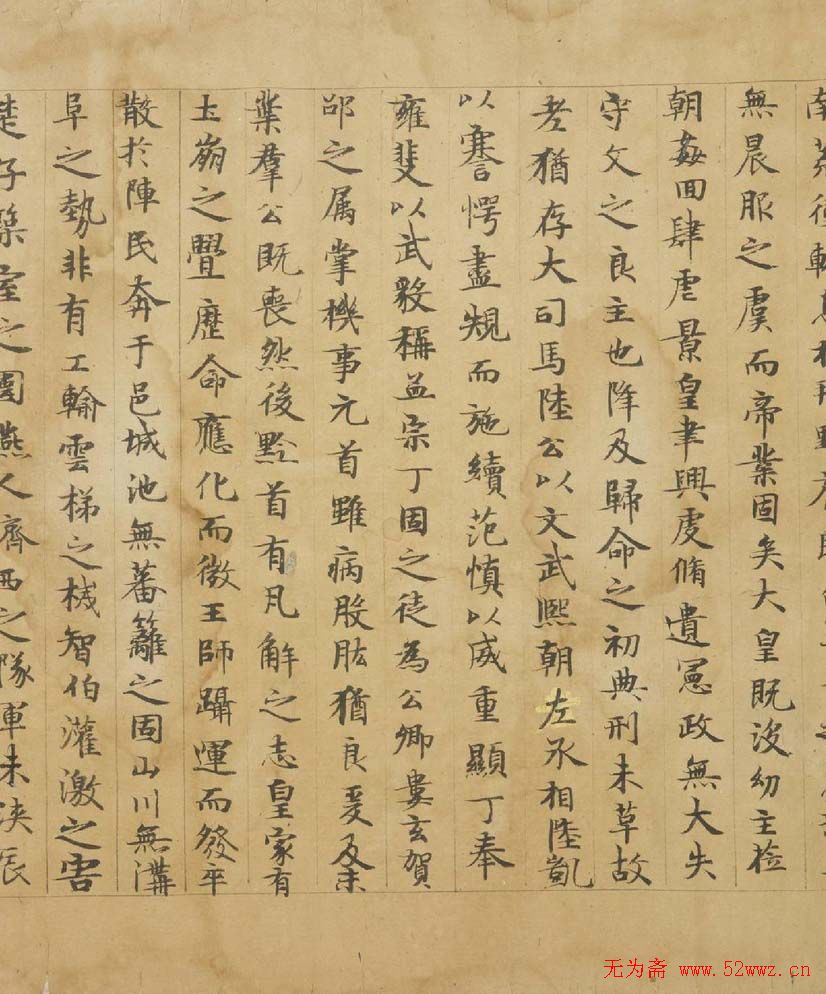 南荒衝
無晨服之虞而帝業固矣大皇既没幼主莅
朝姦回肆虐景皇聿興虔脩遺憲政無大失
守文之良主也降及歸命之初典刑未草故
老猶存大司馬陸公以文武熙朝左丞相陸凱
以謇愕盡規而施續范慎以威重顯丁奉
雍斐以武毅稱孟宗丁固之徒為公卿婁玄賀
邵之属掌機事元首雖病股肱猶良爰及末
葉羣公既喪然後黔首有瓦解之志皇家有
土崩之舋歷命應化而微王師躡運而發卒
散於陣民奔于邑城池無蕃籬之固山川無溝
阜之勢非有工輸雲梯之械智伯灌激之害
楚子築室之圍燕人濟西之隊軍未浹辰
无为斋 www.52wwz.cn